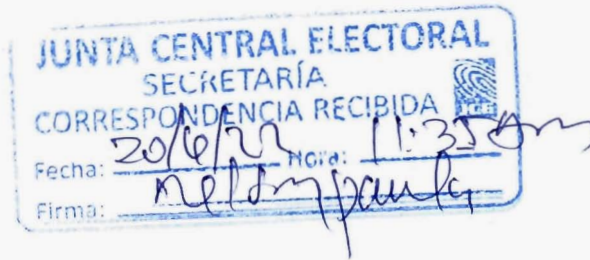 JUNTA CENTRAL ELECTORAL
SECRETARÍA
CORRESPONDENCIA RECIBIDA
JCE
Fecha: 20/6/22 Hora: 11:35 am
Firma: